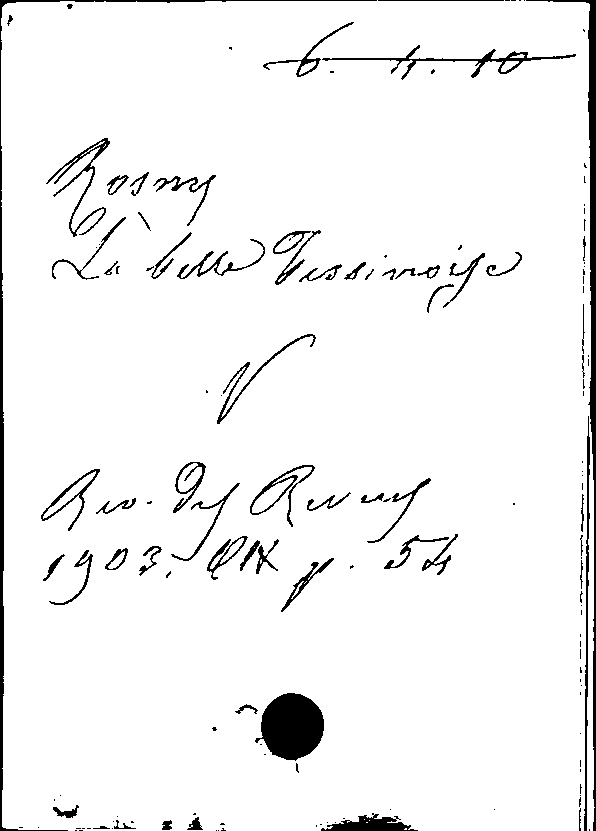 6. 4. 10
Rosny
La belle Tessinoise
V
Rev. des Revues
1903. p. 54